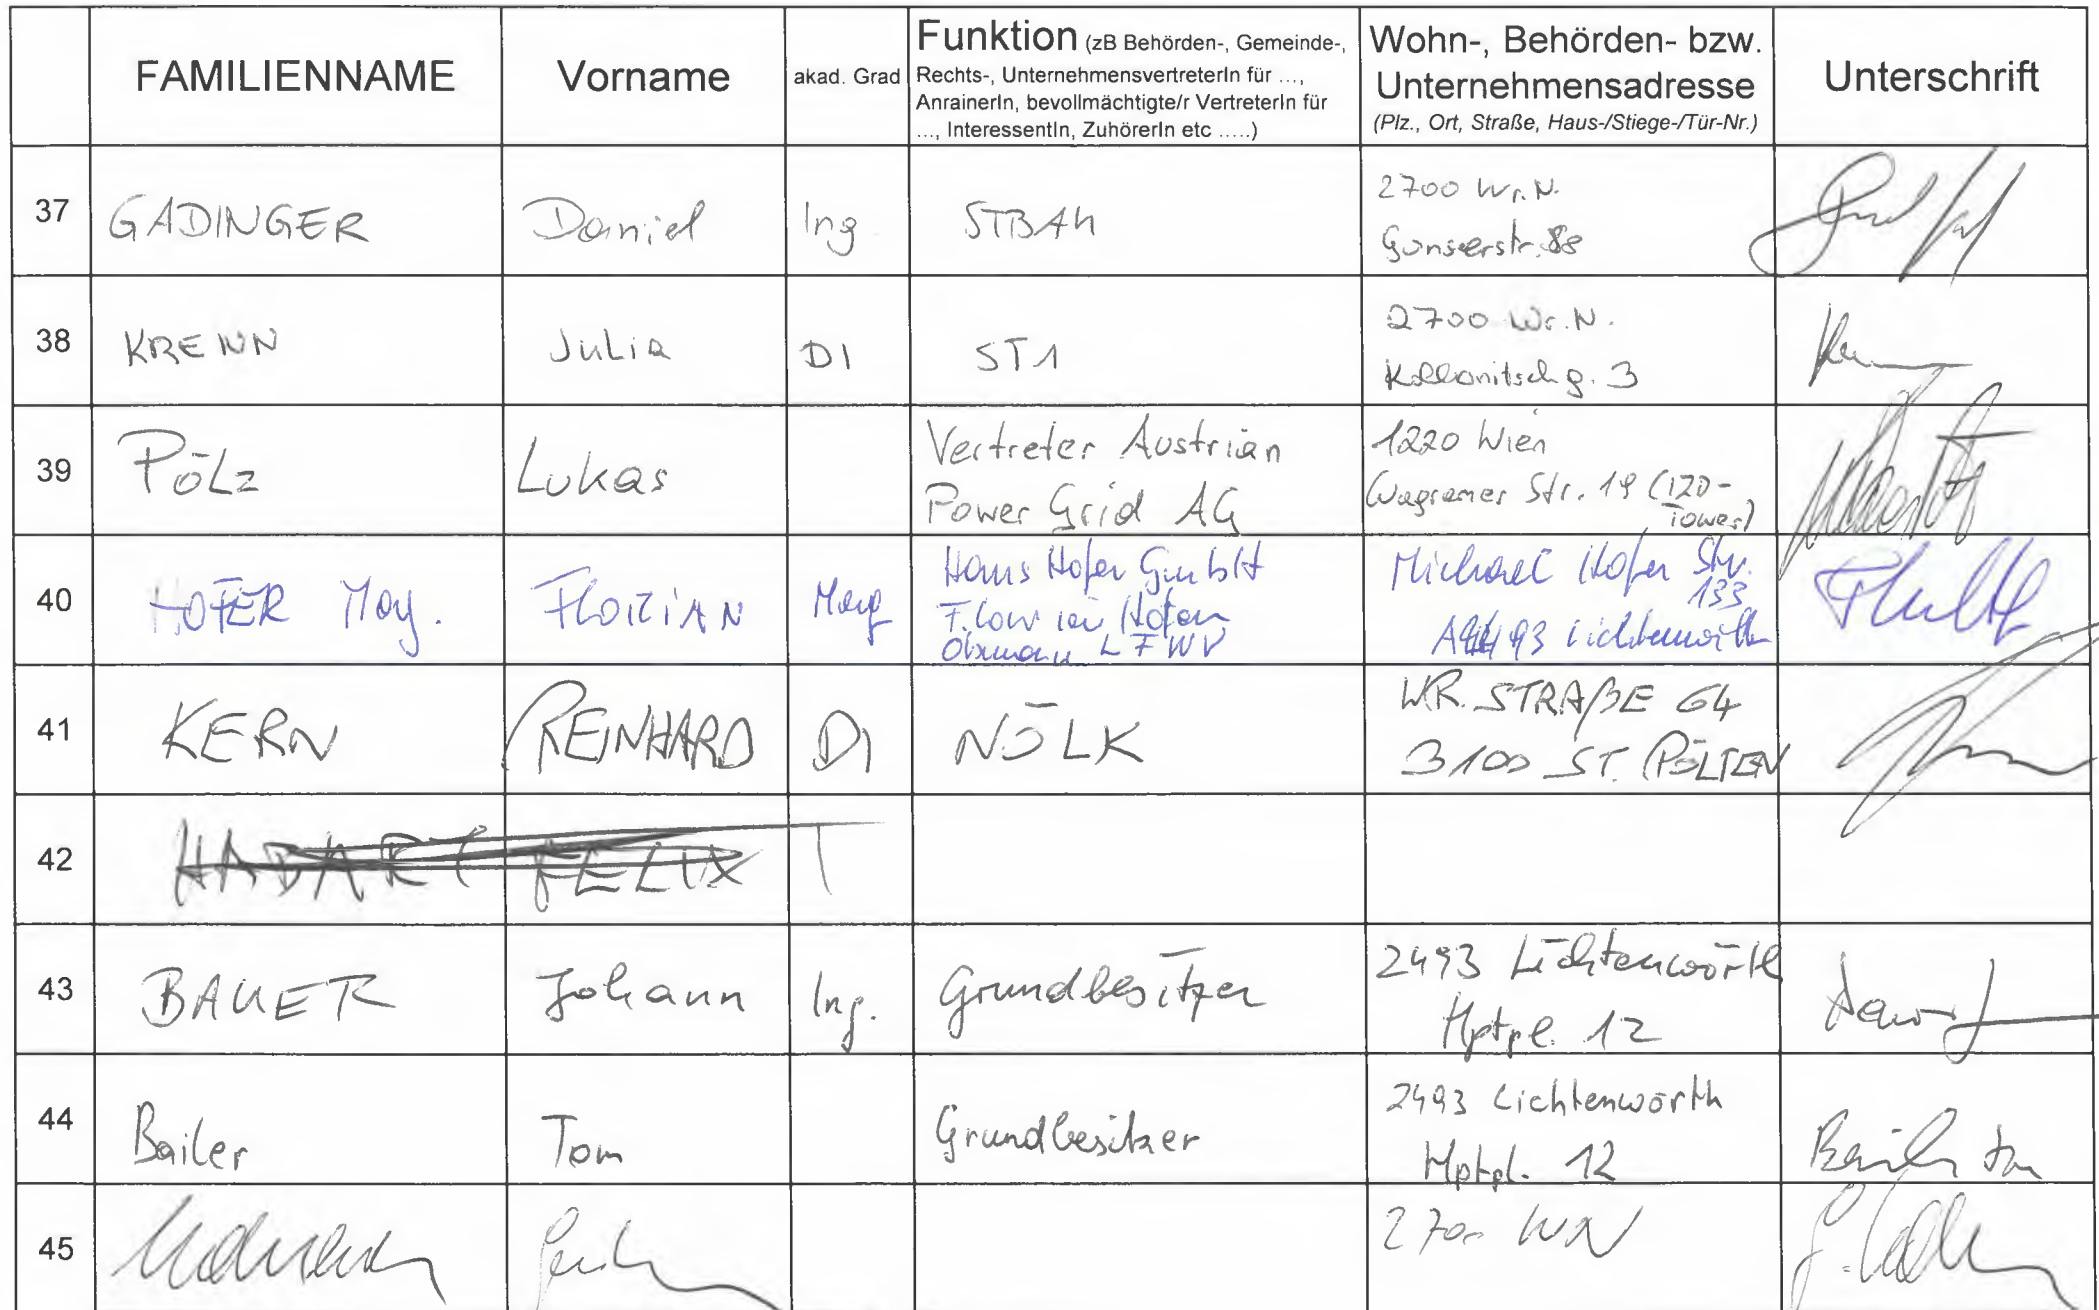 FAMILIENNAME Vorname akad. Grad Funktion (zB Behörden-, Gemeinde-, Rechts-, UnternehmensvertreterIn für ..., AnrainerIn, bevollmächtigte/r VertreterIn für ..., InteressentIn, ZuhörerIn etc .....) Wohn-, Behörden- bzw. Unternehmensadresse (Plz., Ort, Straße, Haus-/Stiege-/Tür-Nr.) Unterschrift
37 GADINGER Daniel Ing STBA4 2700 Wr. N.
Gunserstr. 88
38 KRENN Julia DI ST1 2700 Wr. N.
Kollonitschg. 3
39 Pölz Lukas Vertreter Austrian 1220 Wien
Power Grid AG Wagramer Str. 19 (IZD-
Tower)
40 HOFER Mag. FLORIAN Mag Hans Hofer GmbH Michael Hofer Str.
133
Florian Hofer
Obmann LFWV Lichtenwörth
41 KERN REINHARD DI NÖLK WR. STRAßE 64
3100 ST. PÖLTEN
42 FELIX
43 BAUER Johann Ing. Grundbesitzer 2493 Lichtenwörth
Hptpl. 12
44 Bailer Tom Grundbesitzer 2493 Lichtenwörth
Hptpl. 12 Bailer Tom
45 2700 WN